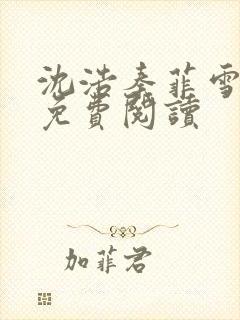 沈浩秦菲雪
免費閱讀
加菲君